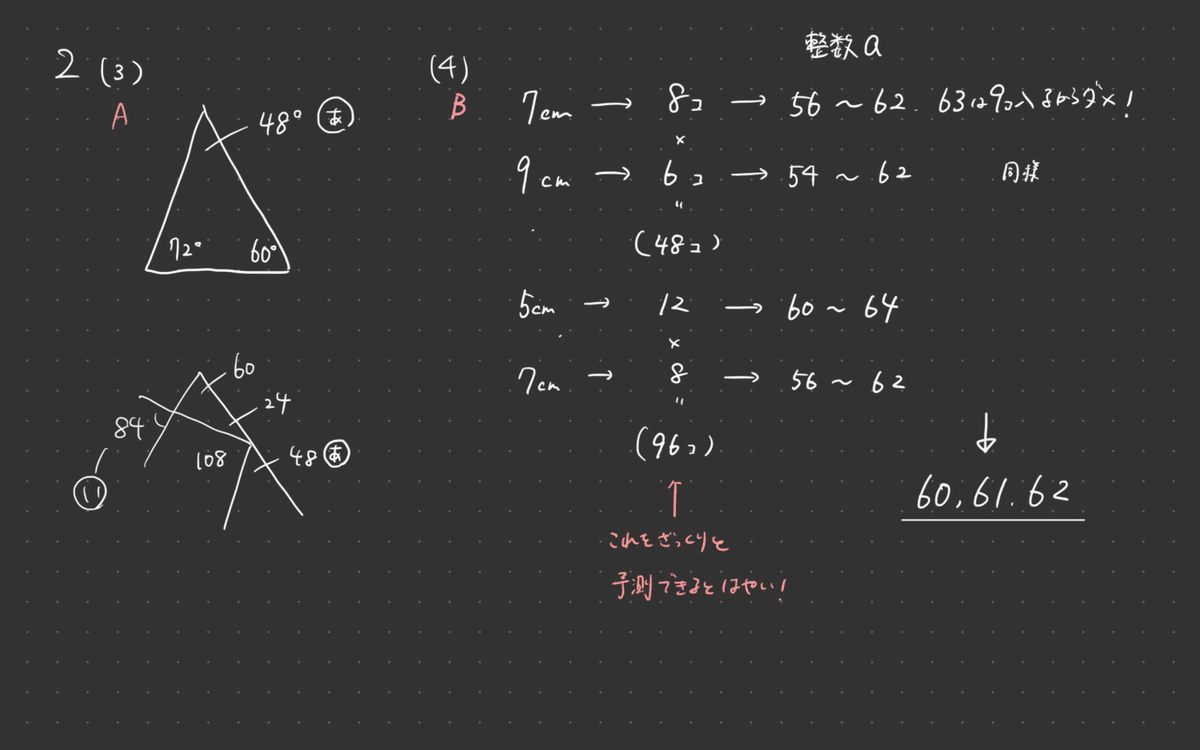 2 (3)
A
48° あ
72° 60°
60
24
84
108
48 あ
い
(4)
B
整数 a
7cm → 8コ → 56 ～ 62. 63は9コ入るからダメ!
×
9cm → 6コ → 54 ～ 62 同様
"
(48コ)
5cm → 12 → 60 ～ 64
×
7cm → 8 → 56 ～ 62
"
(96コ)
↑
これをざっくりと
予測できるとはやい!
↓
60, 61. 62